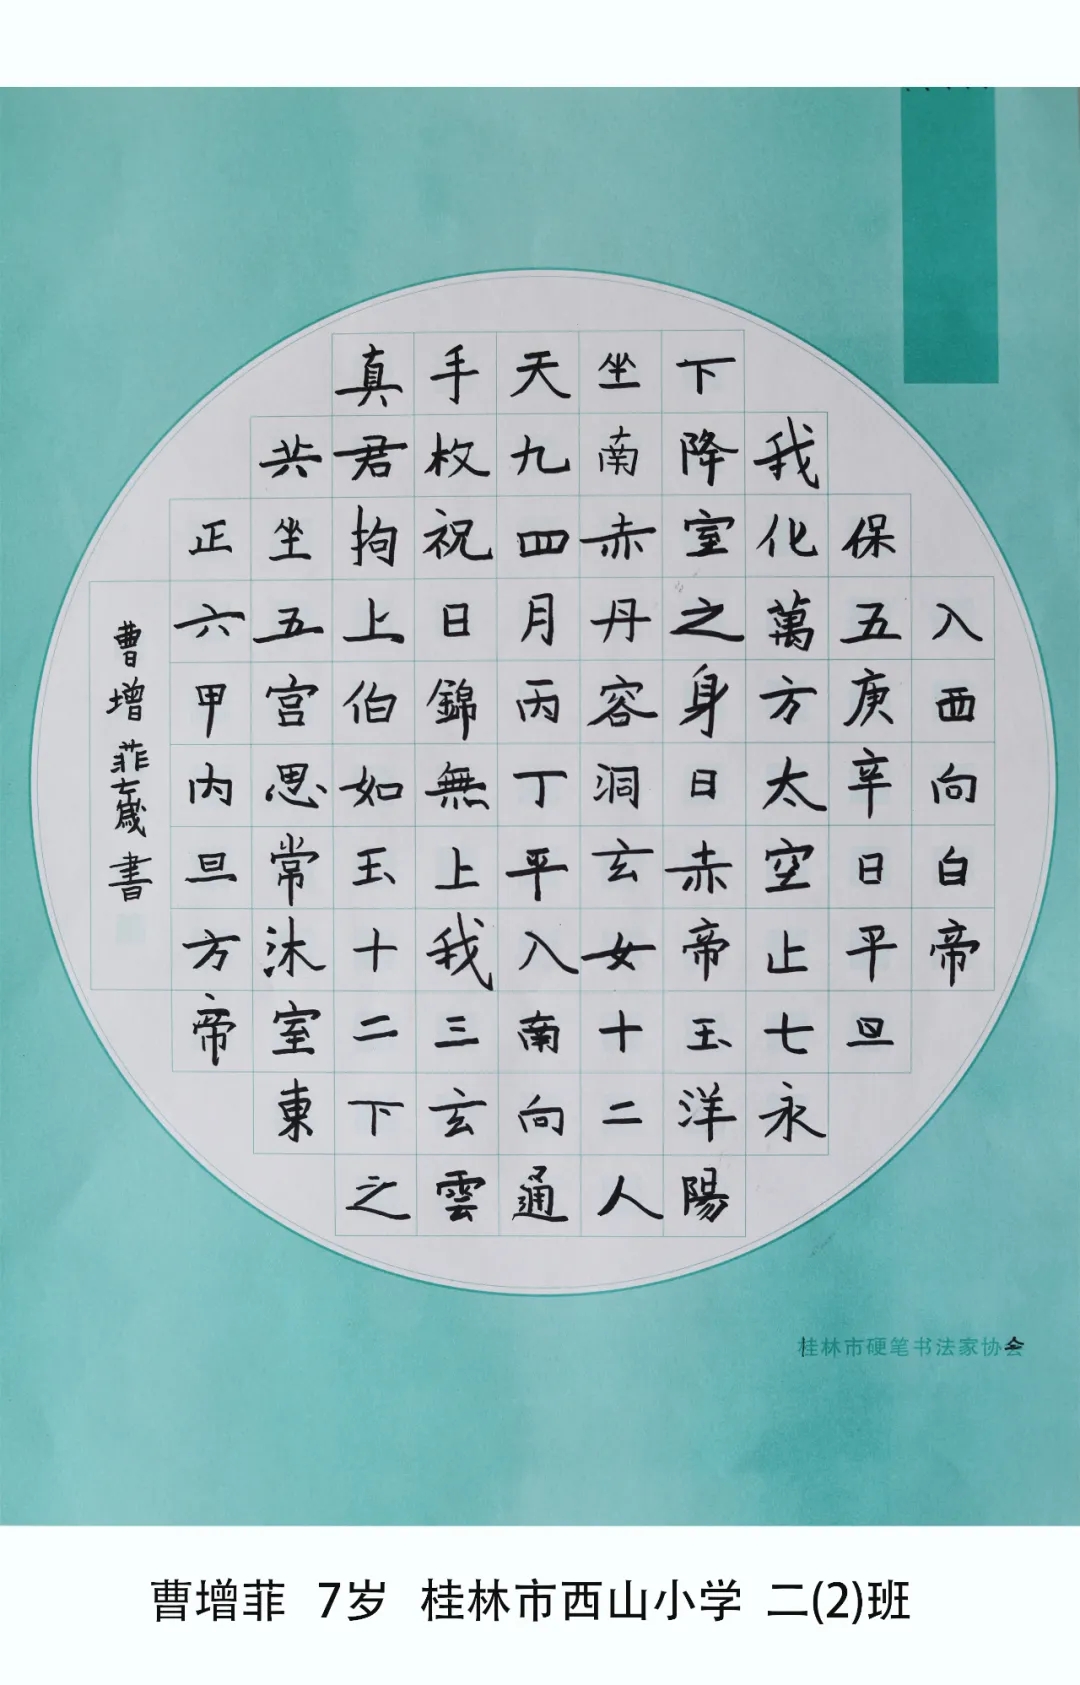 入西向白帝
保五庚辛日平旦
我化萬方太空止七永
下降室之身日赤帝玉洋陽
坐南赤丹容洞玄女十二人
天九四月丙丁平入南向通
手枚祝日錦無上我三玄雲
真君拘上伯如玉十二下之
共坐五宫思常沐室東
正六甲内旦方帝
曹增菲七歲書
桂林市硬笔书法家协会
曹增菲 7岁 桂林市西山小学 二(2)班